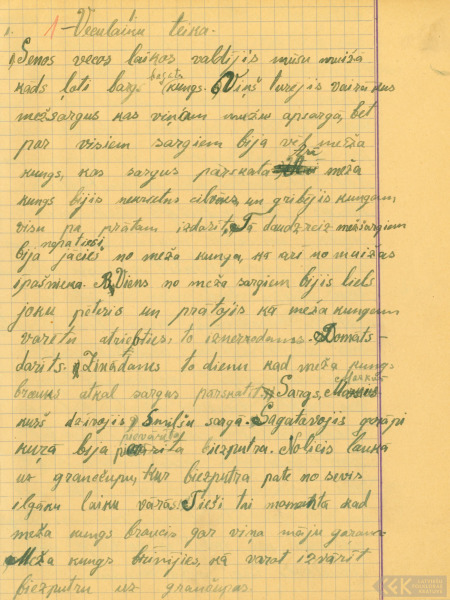 1. 1-Veculaiku teika.
1) Senos vecos laikos valdījis mūsu muižā
kāds ļoti bargs bogots kungs. Viņš turējis vairākus
mežsargus kas viņam mužu apsargā, bet
par visiem sargiem bija vēl meža
kungs, kas sargus pārskata, tai meža
kungs bijis nekrietns cilvēks un gribējis kungam
visu pa prātam izdarīt. Tā daudzreiz mežsargiem
bija nepatiesi jācieš no meža kunga, kā arī no muižas
īpašnieka. Viens no meža sargiem bijis liels
joku pēteris un prātojis kā meža kungam
varētu atriebties, to izneezdams. Domāts-
darīts. Zinādams to dienu kad meža kungs
brauks atkal sargus pārskatīt. Sargs,
kurš dzīvojis Smilšu sargā. Sagatavojis
kurā bija pievārīta biezputra. Nolicis laukā
uz grančupu, kur biezputra pate no sevis
ilgāku laiku vārās. Tieši tai momentā kad
meža kungs braucis gar viņa māju garām
Meža kungs brīnījies, kā varot izvārīt
biezputru uz grančupas.